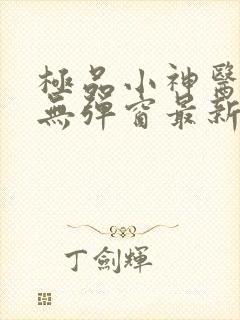 極品小神醫
無彈窗最新
丁劍輝